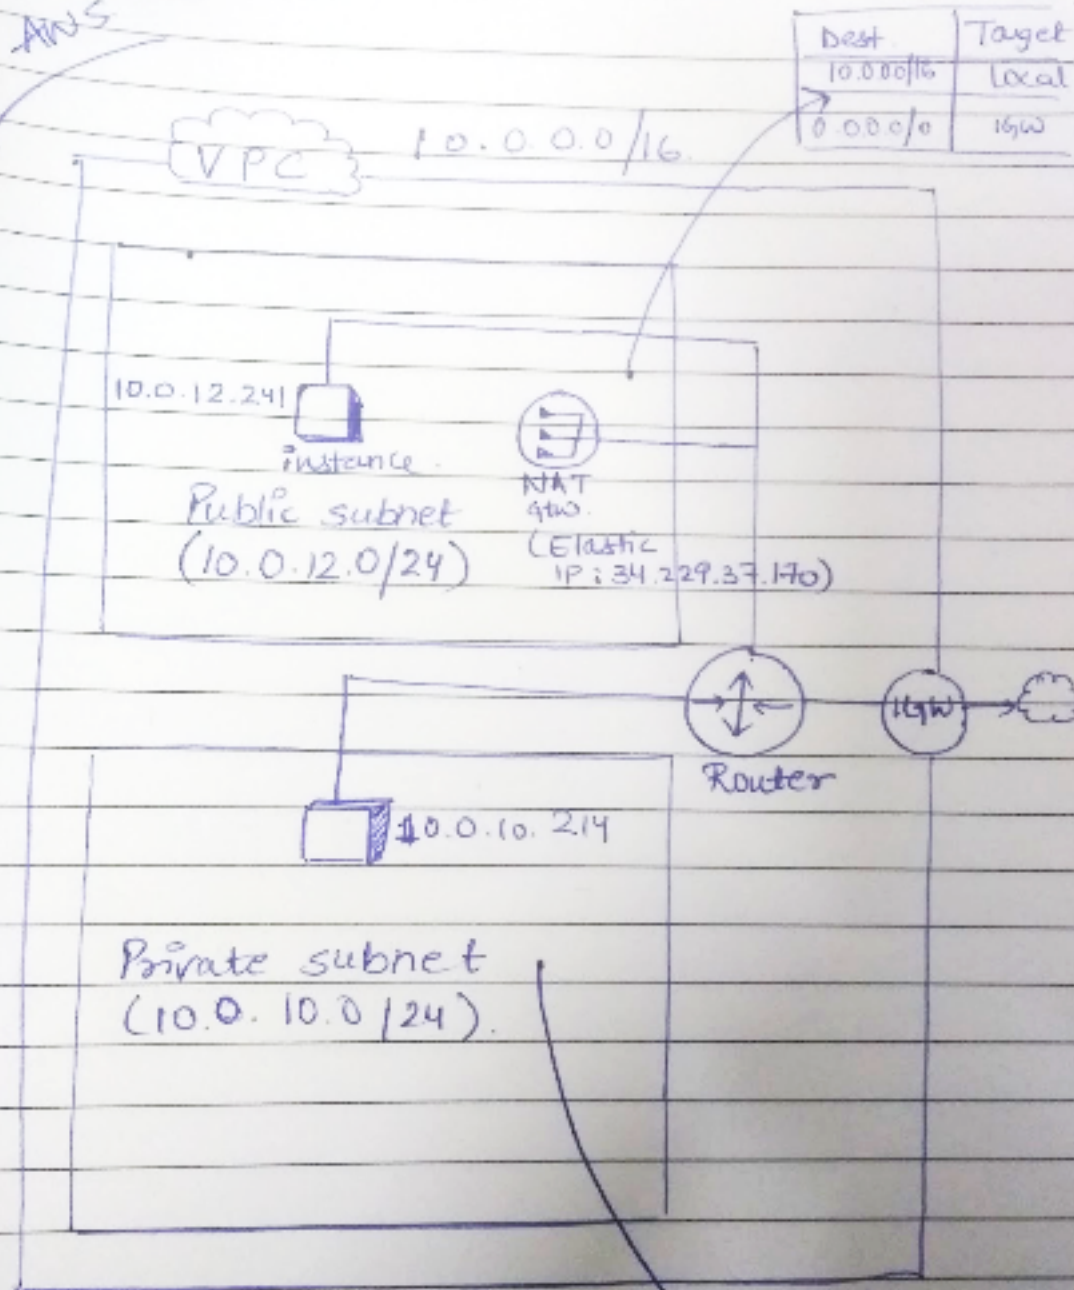 AWS
Dest. Target
10.0.0.0/16 Local
0.0.0.0/0 IGW
VPC 10.0.0.0/16
10.0.12.241
instance
NAT
gtw.
Public subnet
(10.0.12.0/24)
(Elastic
IP : 34.229.37.170)
IGW
Router
10.0.10.214
Private subnet
(10.0.10.0/24).